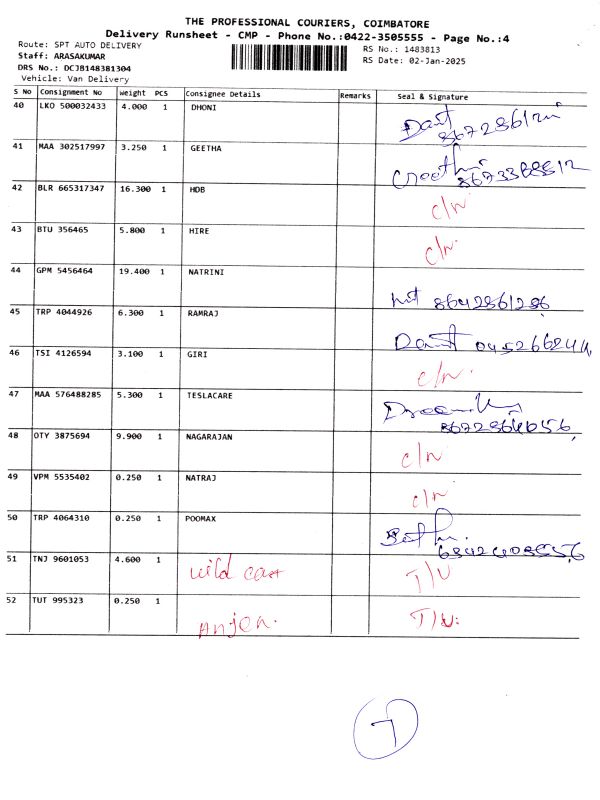 THE PROFESSIONAL COURIERS, COIMBATORE
Delivery Runsheet - CMP - Phone No.:0422-3505555 - Page No.:4
Route: SPT AUTO DELIVERY
Staff: ARASAKUMAR
DRS No.: DCJB148381304
Vehicle: Van Delivery
RS No.: 1483813
RS Date: 02-Jan-2025
S No Consignment No Weight PCS Consignee Details Remarks Seal & Signature
40 LKO 500032433 4.000 1 DHONI
41 MAA 302517997 3.250 1 GEETHA
42 BLR 665317347 16.300 1 HDB c/n
43 BTU 356465 5.800 1 HIRE c/n
44 GPM 5456464 19.400 1 NATRINI 8642861286
45 TRP 4044926 6.300 1 RAMRAJ
46 TSI 4126594 3.100 1 GIRI c/n
47 MAA 576488285 5.300 1 TESLACARE
48 OTY 3875694 9.900 1 NAGARAJAN c/n
49 VPM 5535402 0.250 1 NATRAJ c/n
50 TRP 4064310 0.250 1 POOMAX
51 TNJ 9601053 4.600 1 wild cast T/U
52 TUT 995323 0.250 1 Anjen. T/U.
7